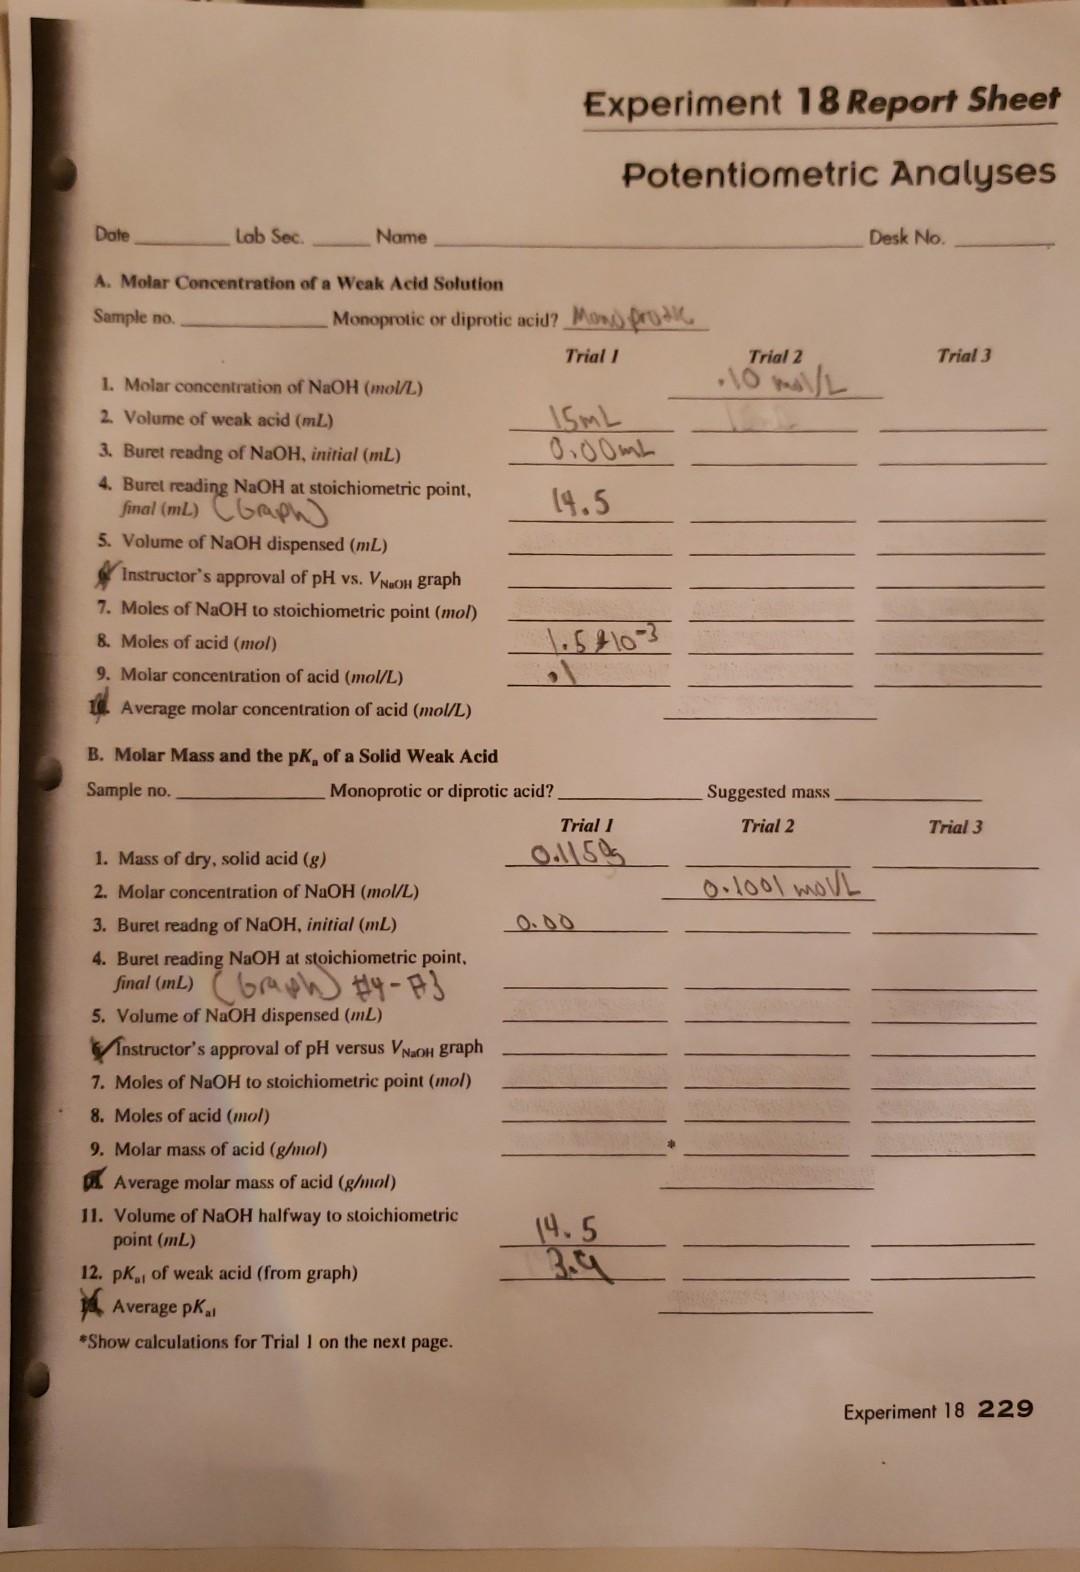 Experiment 18 Report Sheet
Potentiometric Analyses
Date Lab Sec. Name Desk No.
A. Molar Concentration of a Weak Acid Solution
Sample no. Monoprotic or diprotic acid? Monoprotic
Trial 1 Trial 2 Trial 3
1. Molar concentration of NaOH (mol/L) .10 mol/L
2. Volume of weak acid (mL) 15mL
3. Buret readng of NaOH, initial (mL) 0.00mL
4. Buret reading NaOH at stoichiometric point,
final (mL) (Graph) 14.5
5. Volume of NaOH dispensed (mL)
Instructor's approval of pH vs. VNaOH graph
7. Moles of NaOH to stoichiometric point (mol)
8. Moles of acid (mol) 1.5 * 10-3
9. Molar concentration of acid (mol/L) .1
Average molar concentration of acid (mol/L)
B. Molar Mass and the pKa of a Solid Weak Acid
Sample no. Monoprotic or diprotic acid? Suggested mass
Trial 1 Trial 2 Trial 3
1. Mass of dry, solid acid (g) 0.115
2. Molar concentration of NaOH (mol/L) 0.1001 mol/L
3. Buret readng of NaOH, initial (mL) 0.00
4. Buret reading NaOH at stoichiometric point,
final (mL) (Graph) #4-#3
5. Volume of NaOH dispensed (mL)
Instructor's approval of pH versus VNaOH graph
7. Moles of NaOH to stoichiometric point (mol)
8. Moles of acid (mol)
9. Molar mass of acid (g/mol) *
Average molar mass of acid (g/mol)
11. Volume of NaOH halfway to stoichiometric
point (mL) 14.5
12. pKa1 of weak acid (from graph) 3.9
Average pKa1
*Show calculations for Trial 1 on the next page.
Experiment 18 229